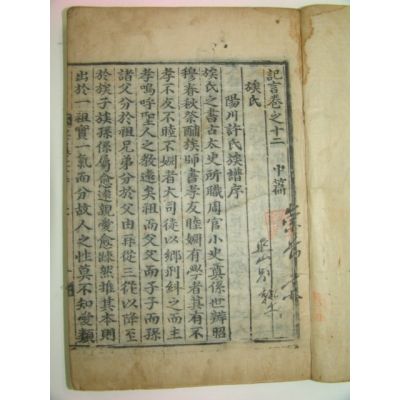 記言卷之十二 中篇
族氏
陽川許氏族譜序
族氏之書古太史所職周官小史奠係世辨昭
穆春秋祭酺族師書孝友睦婣有學者其有不
孝不友不睦不婣者大司徒以鄉刑糾之而主
孝嗚呼聖人之敎遠矣祖而父父而子子而孫
諸父分於祖兄弟分於父由再從三從以降至
於族子族孫係屬愈遠親愛愈踈然推其本則
出於一祖實一氣而分故人之性莫不知愛類